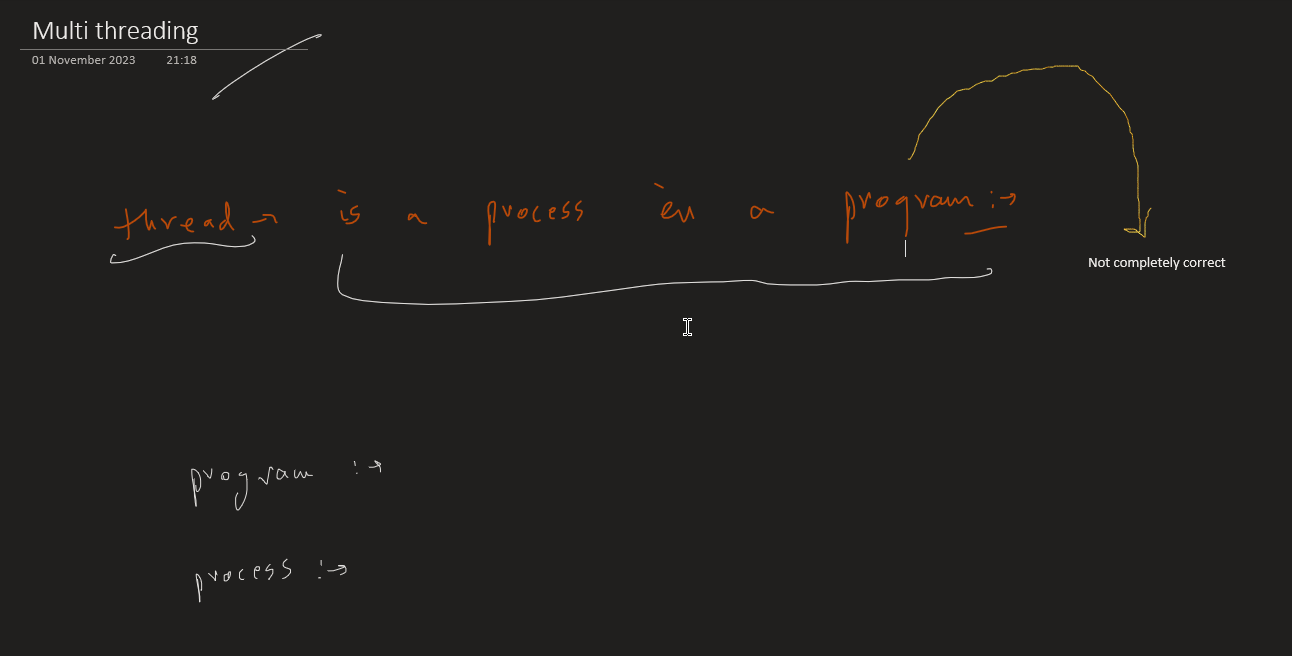 Multi threading
01 November 2023 21:18
thread → is a process in a program :→
Not completely correct
program :→
process :→